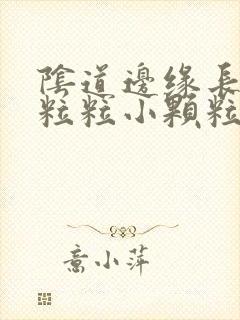 陰道邊緣長
粒粒小顆粒
喬小萍